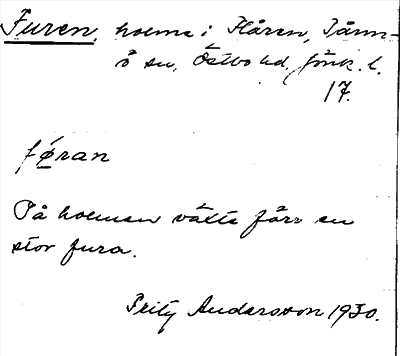 Furen, holme i Flåren, Tånn-
ö sn, Östbo hd. Jönk. l.
17.
føran
På holmen växte förr en
stor fura.
Fritz Andersson 1930.